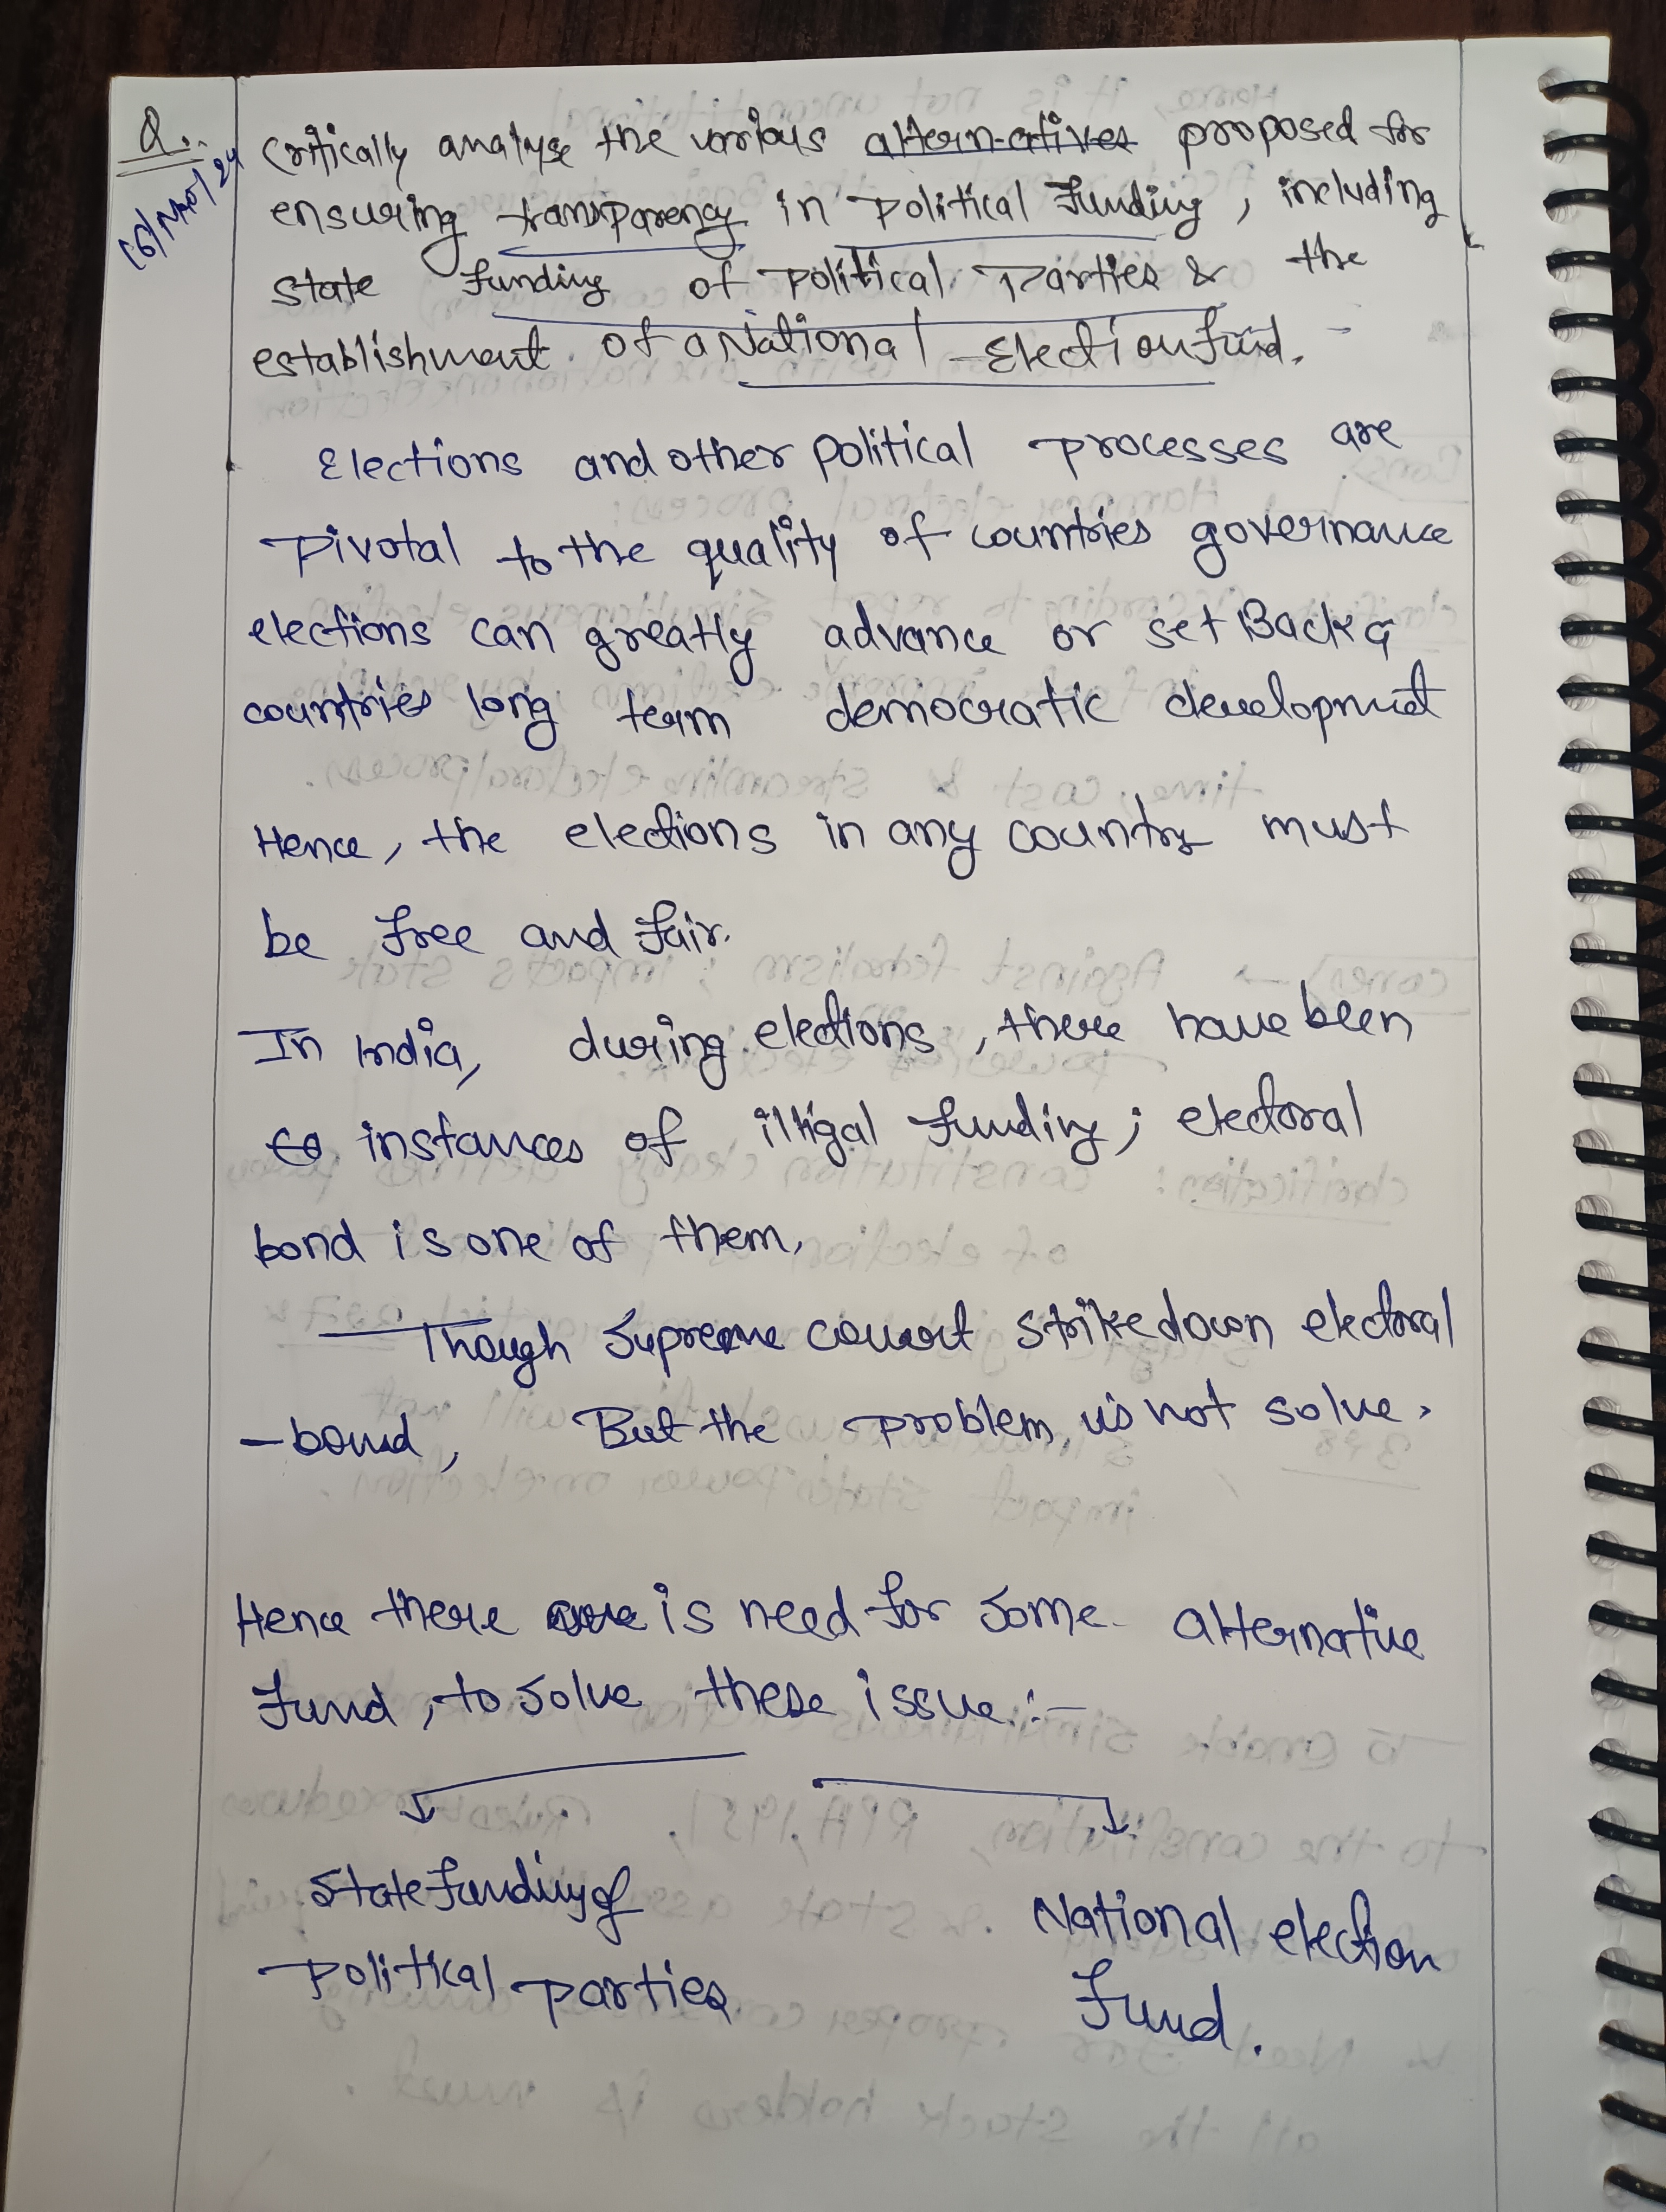 Q.. Critically analyse the various alternatives proposed for
16/Nov/24
ensuring transparency in political funding, including
state funding of political parties & the
establishment of a National Election fund.
Elections and other political processes are
pivotal to the quality of countries governance
elections can greatly advance or set Back a
countries long term democratic development
Hence, the elections in any country must
be free and fair.
In India, during elections, there have been
instances of illigal funding; electoral
bond is one of them.
Though Supreme court strike down electoral
-bond, But the problem is not solve.
Hence there is need for some alternative
fund, to solve these issue :-
State funding of
political parties
National election
fund.